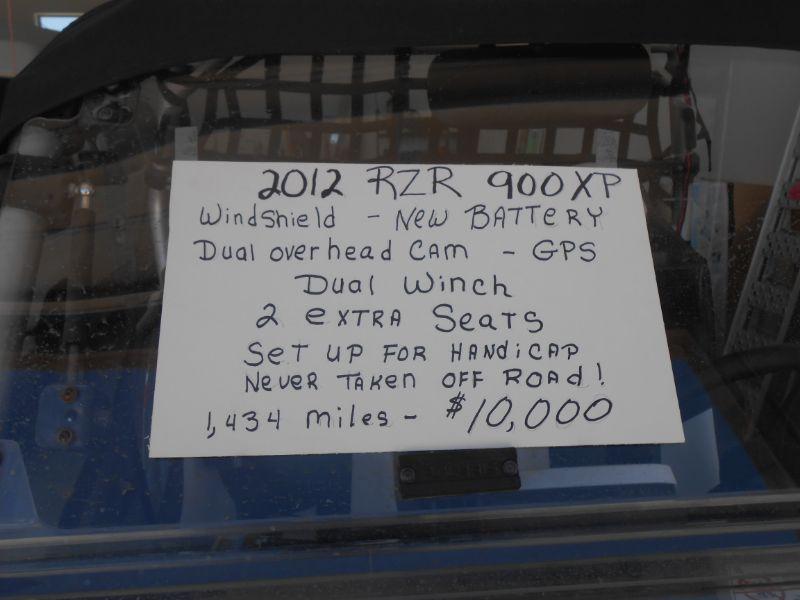 2012 RZR 900XP
Windshield - NEW BATTERY
Dual overhead CAM - GPS
Dual Winch
2 eXTRA SeaTS
SeT UP FOR HANDiCAP
NeveR TAKeN OFF ROAd!
1,434 miles - $10,000